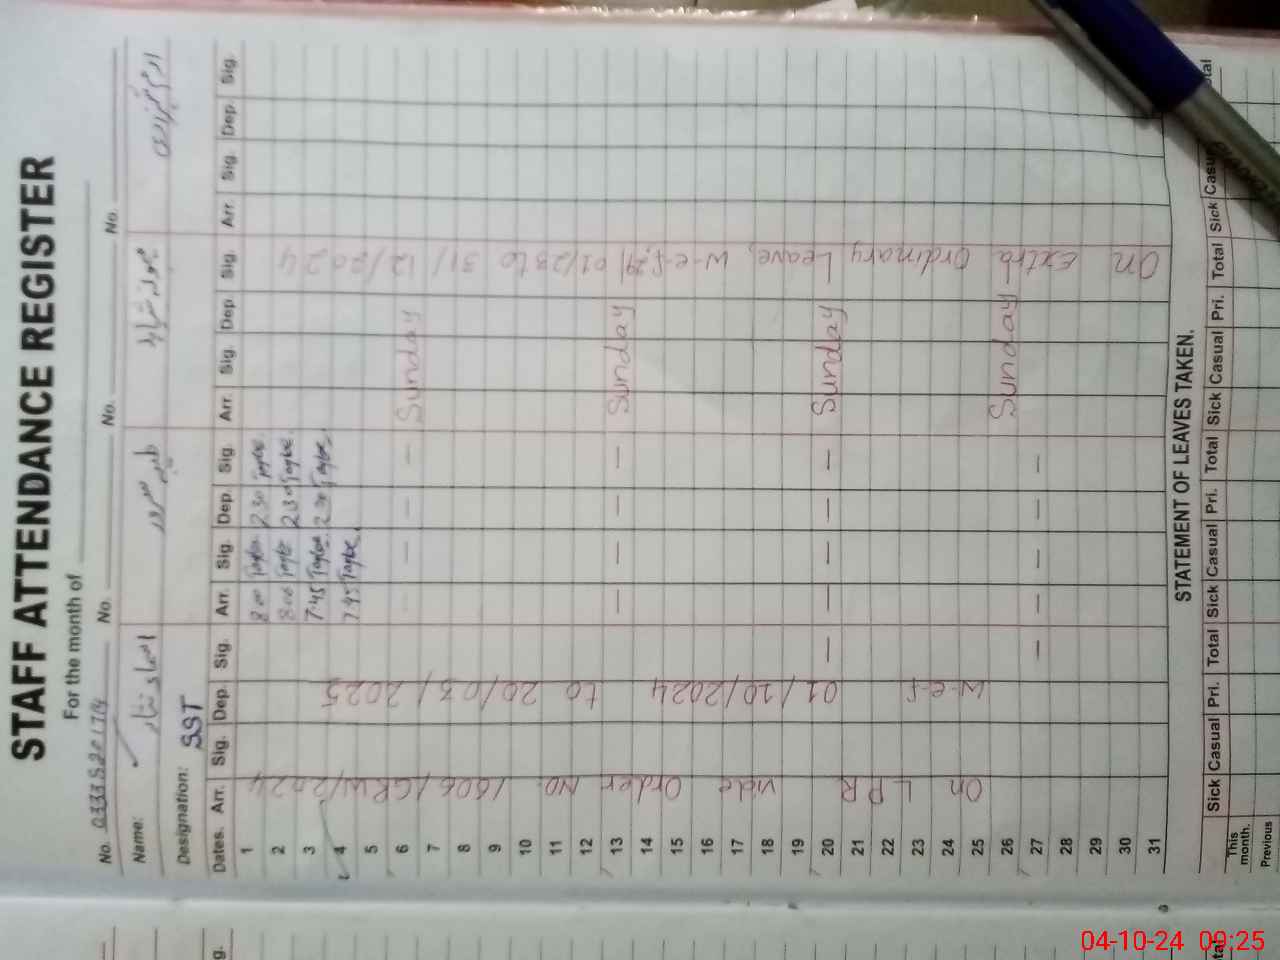 STAFF ATTENDANCE REGISTER
For the month of
No. 03335201714 No. No. No.
Name: طیبہ سرور
Designation: SST
Dates. Arr. Sig. Dep. Sig. Arr. Sig. Dep. Sig. Arr. Sig. Dep Sig. Arr. Sig. Dep. Sig.
1 8:00 2:30
2 8:00 2:30
3 7:45 2:30
4 7:45
5
6 — — — Sunday
7
8
9
10
11
12
13 — — — — Sunday
14
15
16
17
18
19
20 — — — — — Sunday
21
22
23
24
25
26 Sunday
27 — — — — —
28
29
30
31
On LPR vide Order No. 1606/GRW/2024
w-e-f 01/10/2024 to 20/03/2025
On extra Ordinary Leave, w-e-f 01/23 to 31/12/2024
STATEMENT OF LEAVES TAKEN.
Sick Casual Pri. Total Sick Casual Pri. Total Sick Casual Pri. Total Sick
This month.
Previous
04-10-24 09:25